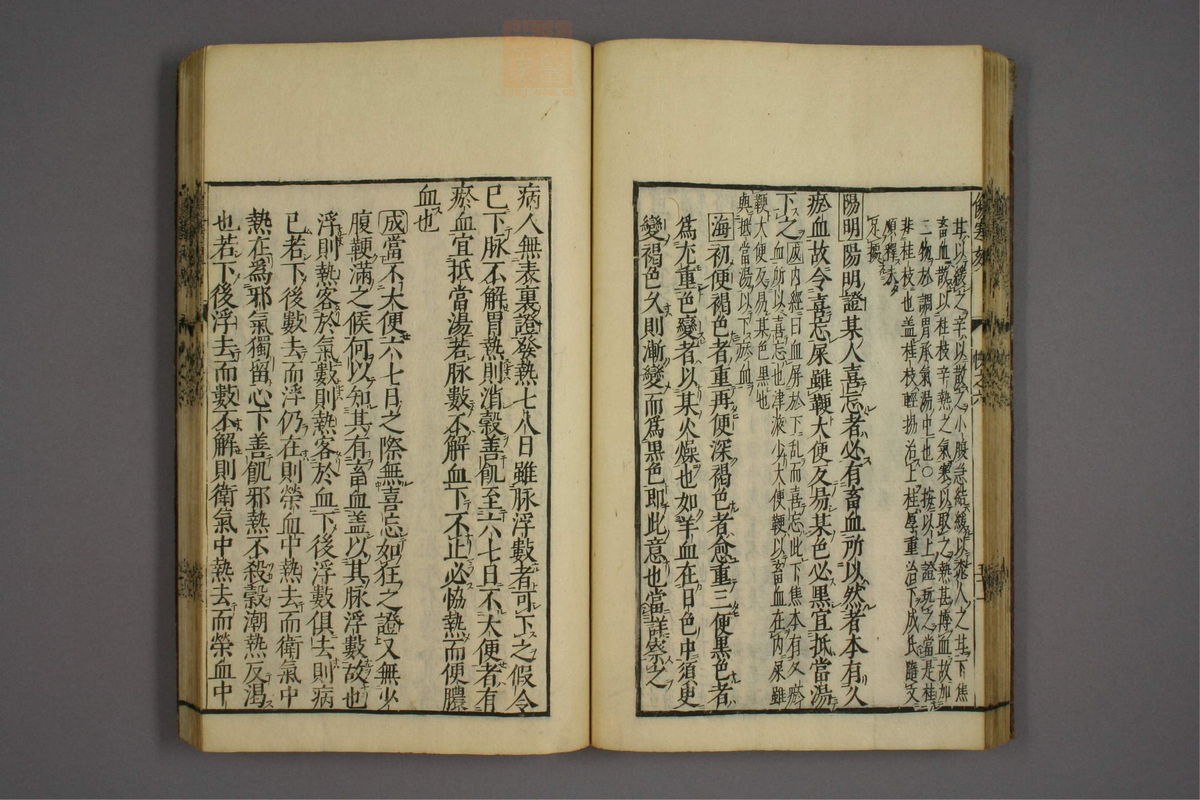 甘以緩之辛以散之小腹急結緩以桃仁之甘下焦
畜血散以桂枝辛熱之氣寒以取之熱甚搏血故加
二物於調胃承氣湯中也○按以上證玩之當是桂
非桂枝也蓋桂枝輕揚治上桂厚重治下成氏隨文
順釋未
足據
陽明陽明證其人喜忘者必有畜血所以然者本有久
瘀血故令喜忘屎雖鞕大便反易其色必黑宜抵當湯
下之
成内經曰血屏於下乱而喜忘此下焦本有久瘀
血所以喜忘也津液少大便鞕以畜血在内屎雖
鞕大便反易其色黑也
與抵當湯以下瘀血
海初便褐色者重再便深褐色者愈重三便黒色者
爲尤重色變者以其火燥也如羊血在日色中須更
變褐色久則漸變而爲黒色即此意也當詳察之
病人無表裏證發熱七八日雖脉浮數者可下之假令
已下脉不解胃熱則消穀善飢至六七日不大便者有
瘀血宜抵當湯若脉數不解血下不止必恊熱而便膿
血也
成當不大便六七日之際無喜忘如狂之證又無少
腹鞕滿之候何以知其有畜血盖以其脉浮數故也
浮則熱客於氣數則熱客於血下後浮數俱去則病
已若下後數去而浮仍在則榮血中熱去而衛氣中
熱在爲邪氣獨留心下善飢邪熱不殺穀潮熱反渴
也若下後浮去而數不解則衛氣中熱去而榮血中